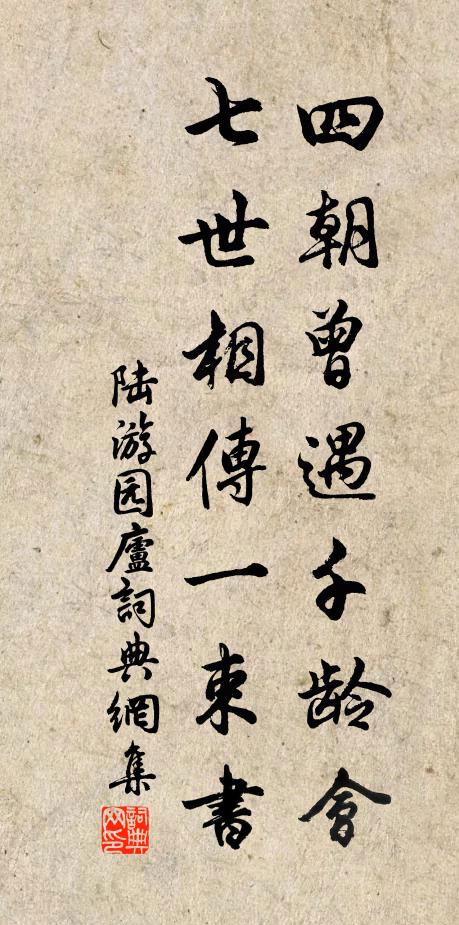 四朝曾遇千龄會
七世相傳一束書
陆游园廬詞典網集
詞典網印